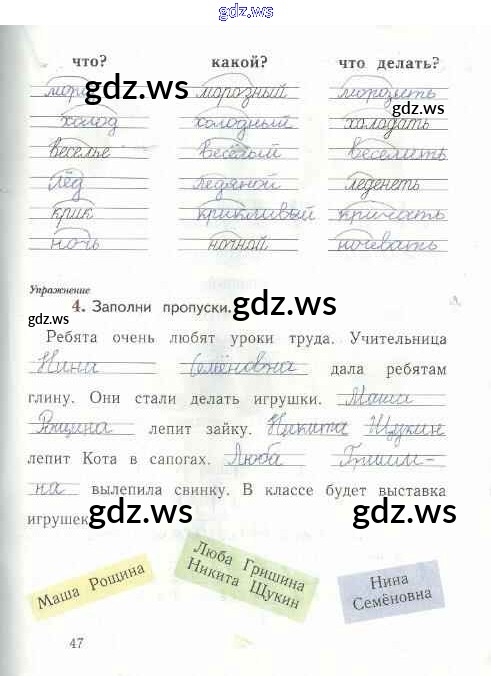 gdz.ws
что? какой? что делать?
gdz.ws
gdz.ws
gdz.ws
мороз морозный морозить
холод холодный холодать
веселье весёлый веселить
лёд ледяной леденеть
крик крикливый кричать
ночь ночной ночевать
Упражнение
4. Заполни пропуски.
gdz.ws
gdz.ws
Ребята очень любят уроки труда. Учительница
Нина Семёновна дала ребятам
глину. Они стали делать игрушки. Маша
Рощина лепит зайку. Никита Щукин
лепит Кота в сапогах. Люба Гриши-
на вылепила свинку. В классе будет выставка
игрушек
gdz.ws
gdz.ws
Маша Рощина
Люба Гришина
Никита Щукин
Нина
Семёновна
47
gdz.ws